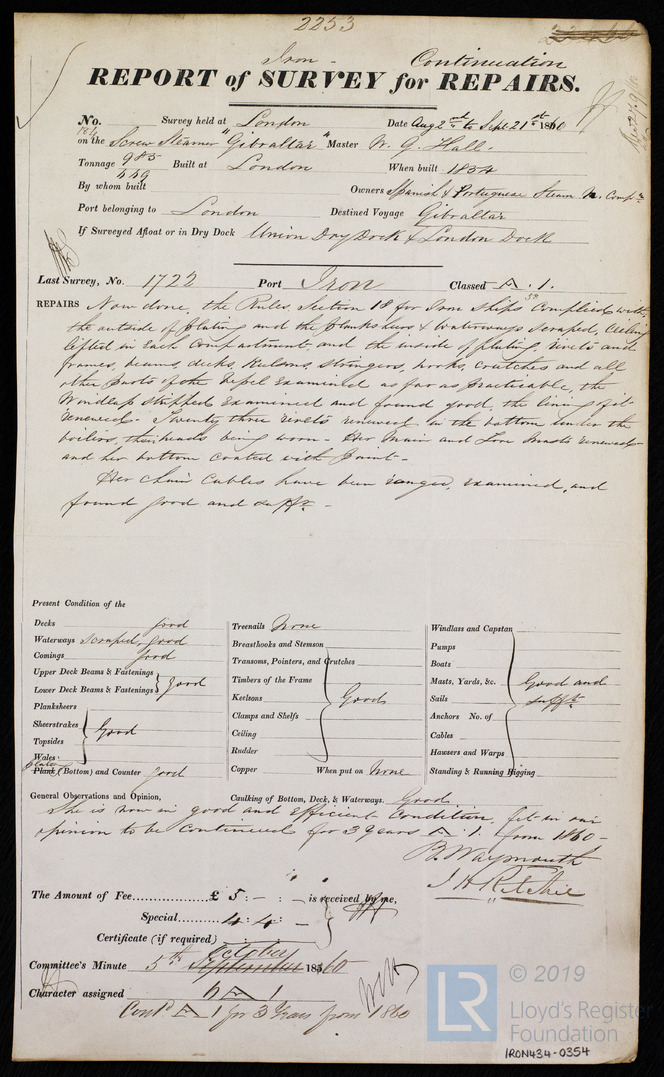 2253
Iron - Continuation
REPORT of SURVEY for REPAIRS.
No. Survey held at London Date Aug 2nd to Sept 21st 1860
on the Screw Steamer "Gibraltar" Master W. G. Hall.
Tonnage 985 Built at London When built 1854
449
By whom built Owners Spanish & Portuguese Steam N. Comp.
Port belonging to London Destined Voyage Gibraltar
If Surveyed Afloat or in Dry Dock Union Dry Dock & London Dock
Last Survey, No. 1722 Port Iron Classed A. 1.
REPAIRS Now done, the Rules, Section 18 for Iron Ships Complied with,
the outside of plating and the planksheers & Waterways scraped, Ceiling
lifted in each Compartment and the inside of plating, rivets and
frames, beams, decks, Keelsons, stringers, hooks, Crutches and all
other parts of the Vessel Examined as far as practicable, the
Windlass stripped Examined and found good, the lining of it
renewed. Twenty three rivets renewed in the bottom under the
boilers, their heads being worn. Her Main and Fore Masts renewed
and her bottom coated with paint.
Her Chain Cables have been ranged, examined, and
found good and sufft. -
Present Condition of the
Decks good
Waterways scraped, good
Comings good
Upper Deck Beams & Fastenings
Lower Deck Beams & Fastenings } good
Planksheers
Sheerstrakes
Topsides
Wales
} Good
Plank (Bottom) and Counter good
Treenails None
Breasthooks and Stemson
Transoms, Pointers, and Crutches
Timbers of the Frame
Keelsons
Clamps and Shelfs
Ceiling
Rudder
} Good
Copper When put on None
Windlass and Capstan
Pumps
Boats
Masts, Yards, &c.
Sails
Anchors No. of
Cables
Hawsers and Warps
Standing & Running Rigging
} Good and sufft.
General Observations and Opinion, Caulking of Bottom, Deck, & Waterways. Good
She is now in good and efficient Condition, fit in our
opinion to be Continued for 3 Years A. 1. from 1860 -
B. Waymouth
J H Ritchie
The Amount of Fee............... £ 5 : - : - is received by me,
Special........ 4 : 4 : -
Certificate (if required)
Committee's Minute 5th September October 1860
Character assigned A 1
Contd A 1 for 3 Years from 1860
LR © 2019
Lloyd's Register
Foundation
IRON434-0354